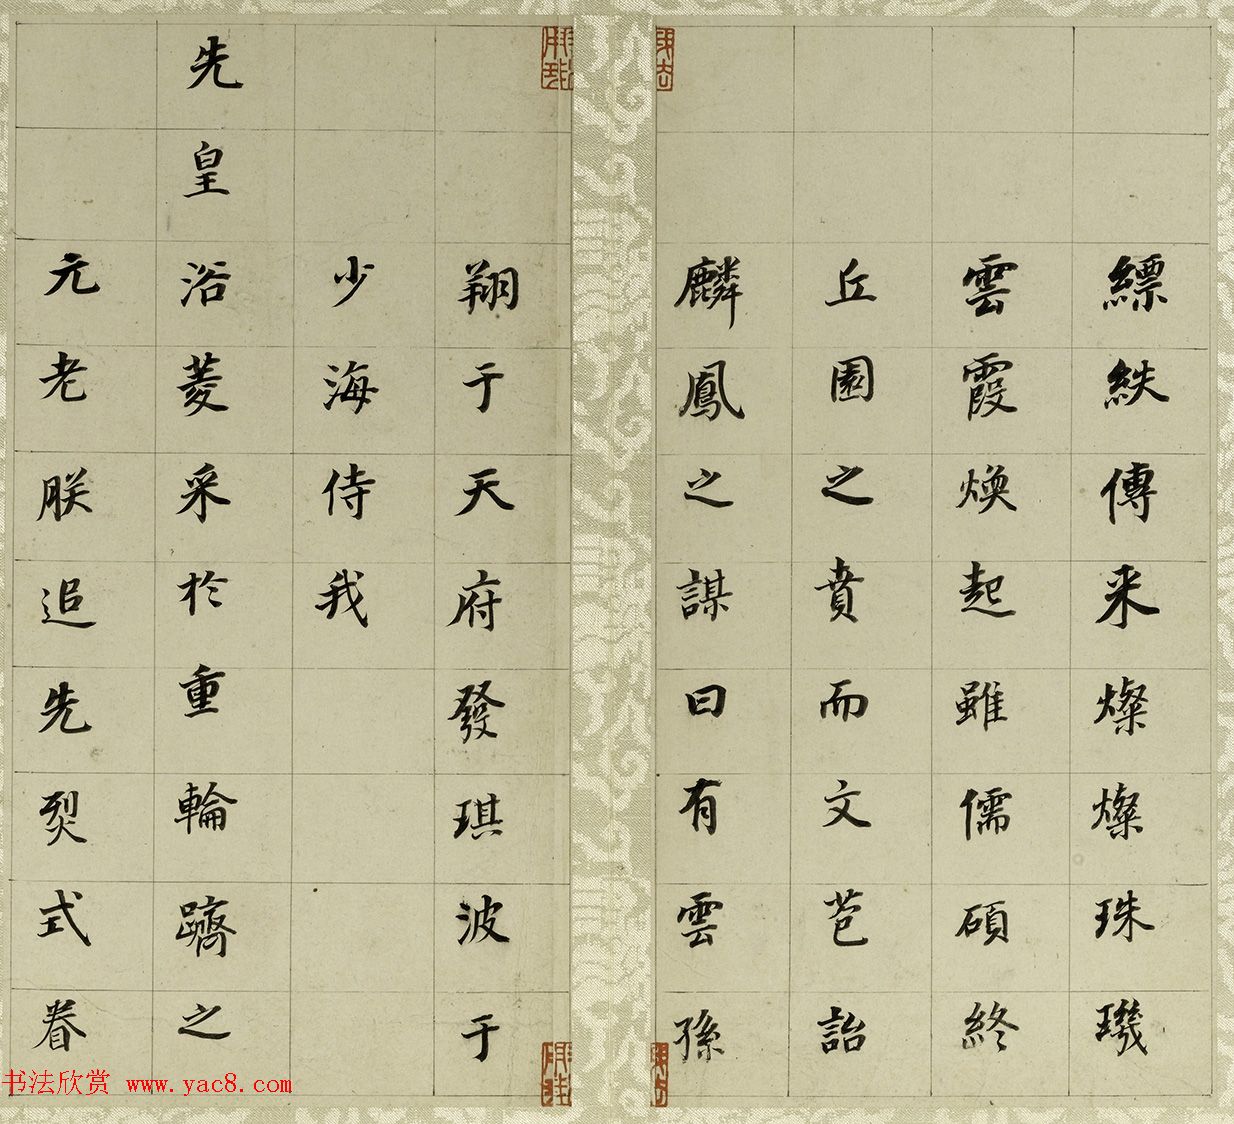 縹帙傳来燦燦珠璣
雲霞煥起雖儒碩終
丘園之賁而文芑詒
麟鳳之謀曰有雲孫
翔于天府發琪波于
少海侍我
先皇浴菱采於重輪躋之
元老朕追先烈式眷
书法欣赏 www.yac8.com